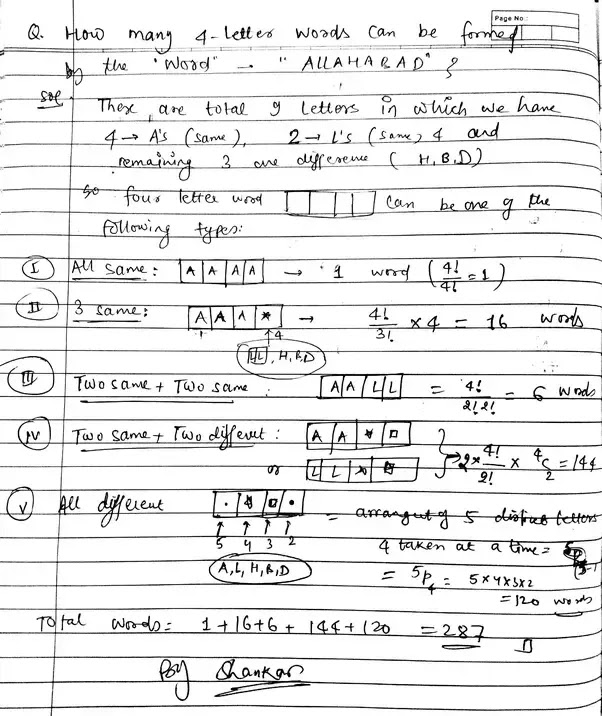 Page No.
Q. How many 4-letter words can be formed
by the "word" → "ALLAHABAD" ?
Sol. There are total 9 letters in which we have
4 → A's (same), 2 → L's (same) & and
remaining 3 are difference (H, B, D)
So four letter word can be one of the
following types:
I All same: A A A A → 1 word (4!/4! = 1)
II 3 same: A A A * → 4!/3! × 4 = 16 words
4
L, H, B, D
III Two same + Two same: A A L L = 4!/2! 2! = 6 words
IV Two same + Two different: A A * □
or L L * □ 2 × 4!/2! × ⁴C₂ = 144
V All different = arrangent of 5 letters
5 4 3 2 4 taken at a time =
A, L, H, B, D = ⁵P₄ = 5×4×3×2
= 120 words
Total words = 1 + 16 + 6 + 144 + 120 = 287
By Shankar